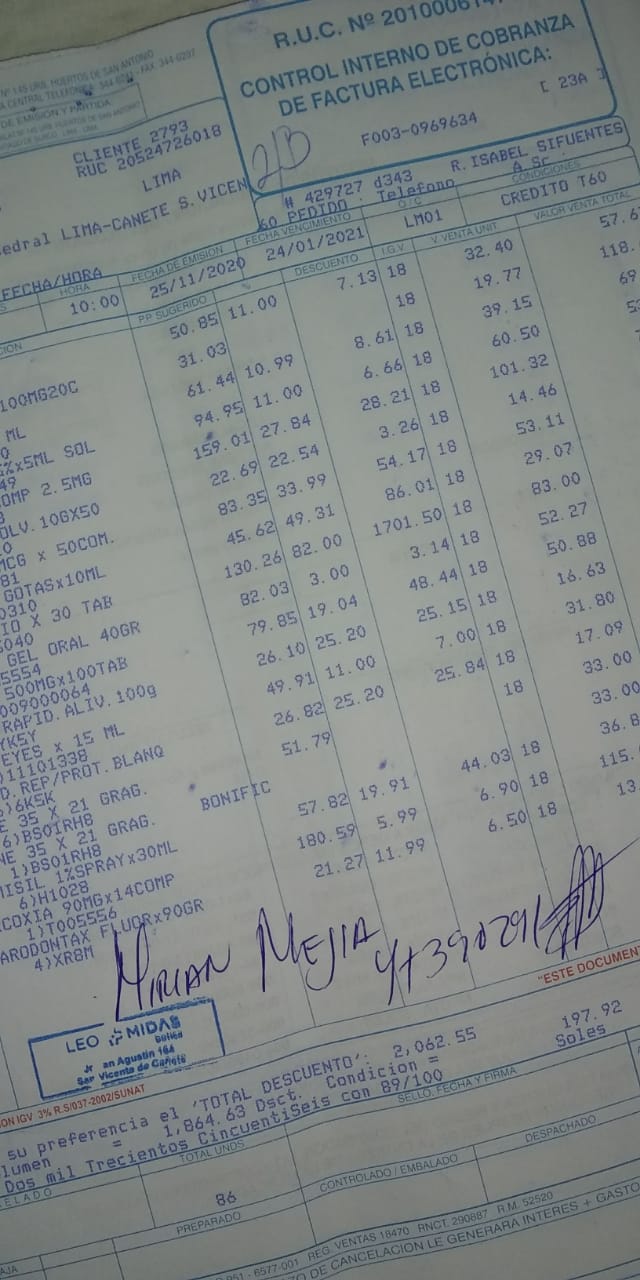 Nº 145 URB. HUERTOS DE SAN ANTONIO
CENTRAL TELEFONICA 344-0241 - FAX 344-0297
DE EMISION Y PARTIDA
R.U.C. Nº
CONTROL INTERNO DE COBRANZA
DE FACTURA ELECTRÓNICA:
[ 23A ]
F003-0969634
CLIENTE 2793
RUC 20524726018
LIMA
edral LIMA-CANETE S.VICEN
# 429727 d343
R.ISABEL SIFUENTES
60 PEDIDO : Telefono
FECHA/HORA
HORA
FECHA DE EMISION
FECHA VENCIMIENTO
O / C
CONDICIONES
10:00
25/11/2020
24/01/2021
LM01
CREDITO T60
CION
PP SUGERIDO
%
DESCUENTO
I.G.V.
V. VENTA UNIT.
VALOR VENTA TOTAL
50.85 11.00 7.13 18 32.40 57.6
100MG20C 31.03 18 19.77 118.
ML 61.44 10.99 8.61 18 39.15 69
%x5ML SOL 94.95 11.00 6.66 18 60.50
OMP 2.5MG 159.01 27.84 28.21 18 101.32
OLV.10GX50 22.69 22.54 3.26 18 14.46
MCG x 50COM. 83.35 33.99 54.17 18 53.11
GOTASx10ML 45.62 49.31 86.01 18 29.07
0310
IO X 30 TAB 130.26 82.00 1701.50 18 83.00
5040
GEL ORAL 40GR 82.03 3.00 3.14 18 52.27
5554
500MGx100TAB 79.85 19.04 48.44 18 50.88
009000064
RAPID.ALIV.100g 26.10 25.20 25.15 18 16.63
YK5Y
EYES x 15 ML 49.91 11.00 7.00 18 31.80
)11101338
D.REP/PROT.BLANQ 26.82 25.20 25.84 18 17.09
)6K5K
E 35 X 21 GRAG. 51.79 18 33.00
6)BS01RH8
NE 35 X 21 GRAG. BONIFIC 33.00
1)BS01RH8
MISIL 1%SPRAYx30ML 57.82 19.91 44.03 18 36.8
6)H1028
COXIA 90MGx14COMP 180.59 5.99 6.90 18 115.
1)T005556
ARODONTAX FLUORx90GR 21.27 11.99 6.50 18 13.
4)XR8M
MIRIAN MEJIA
LEO MIDAS
Botica
San Vicente de Cañete
"ESTE DOCUMEN
ION IGV 3% R.S/037-2002/SUNAT
su preferencia el 'TOTAL DESCUENTO': 2,062.55
197.92
lumen = 1,864.63 Dsct. Condicion =
Soles
Dos mil Trecientos CincuentiSeis con 89/100
SELLO, FECHA Y FIRMA
TOTAL UNDS
86
CONTROLADO / EMBALADO
DESPACHADO
PREPARADO
6577-001 REG. VENTAS 18470 RNCT. 290887 R.M. 52520
DE CANCELACION LE GENERARA INTERES + GASTO